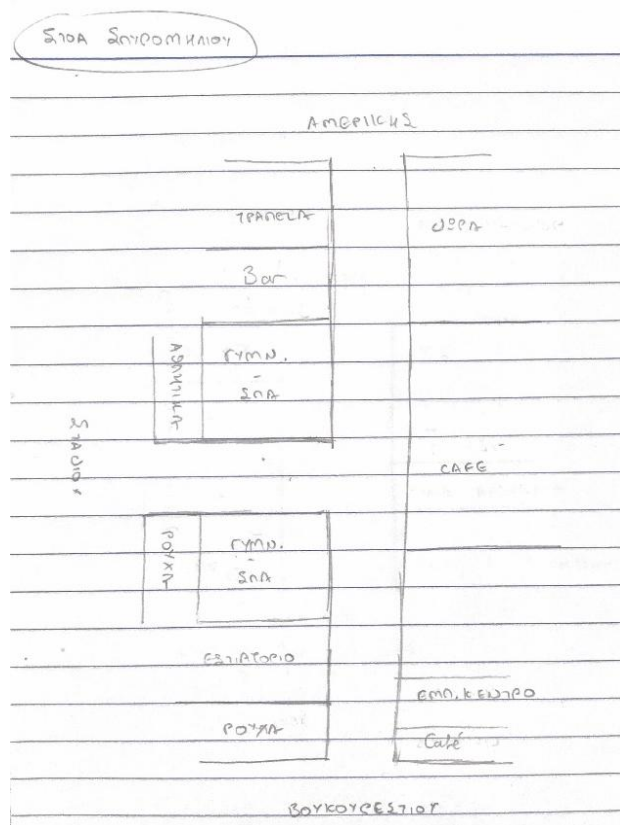 ΣΤΟΑ ΣΠΥΡΟΜΗΛΙΟΥ
ΑΜΕΡΙΚΗΣ
ΤΡΑΠΕΖΑ
ΔΩΡΑ
Bar
ΑΘΛΗΤΙΚΑ
ΓΥΜΝ.
-
ΣΠΑ
ΣΤΑΔΙΟΥ
CAFE
ΡΟΥΧΑ
ΓΥΜΝ.
-
ΣΠΑ
ΕΣΤΙΑΤΟΡΙΟ
ΕΜΠ. ΚΕΝΤΡΟ
ΡΟΥΧΑ
Café
ΒΟΥΚΟΥΡΕΣΤΙΟΥ